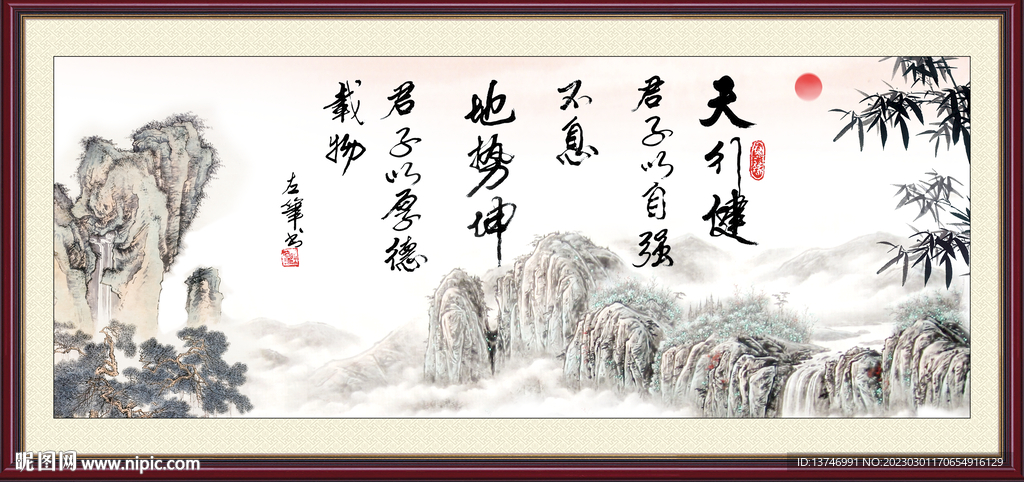 天行健
君子以自强
不息
地势坤
君子以厚德
载物
左笔书
昵图网 www.nipic.com
ID:13746991 NO:20230301170654916129